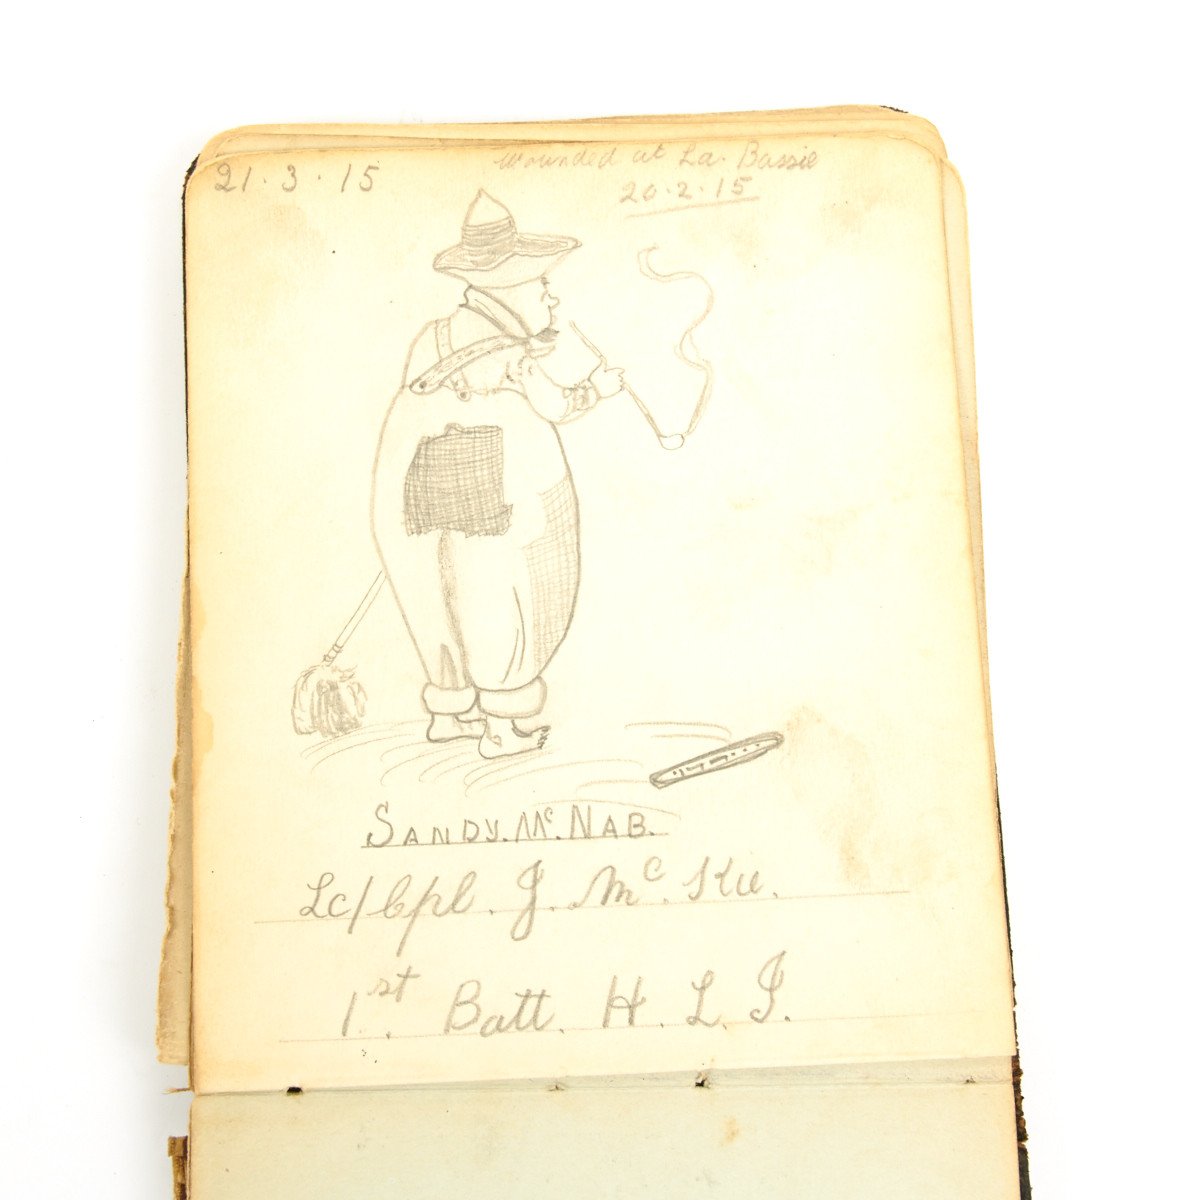 21.3.15
Wounded at La. Bassie
20.2.15
SANDY. Mc. NAB.
Lc/Cpl. J. Mc. Kie.
1st. Batt. H. L. I.